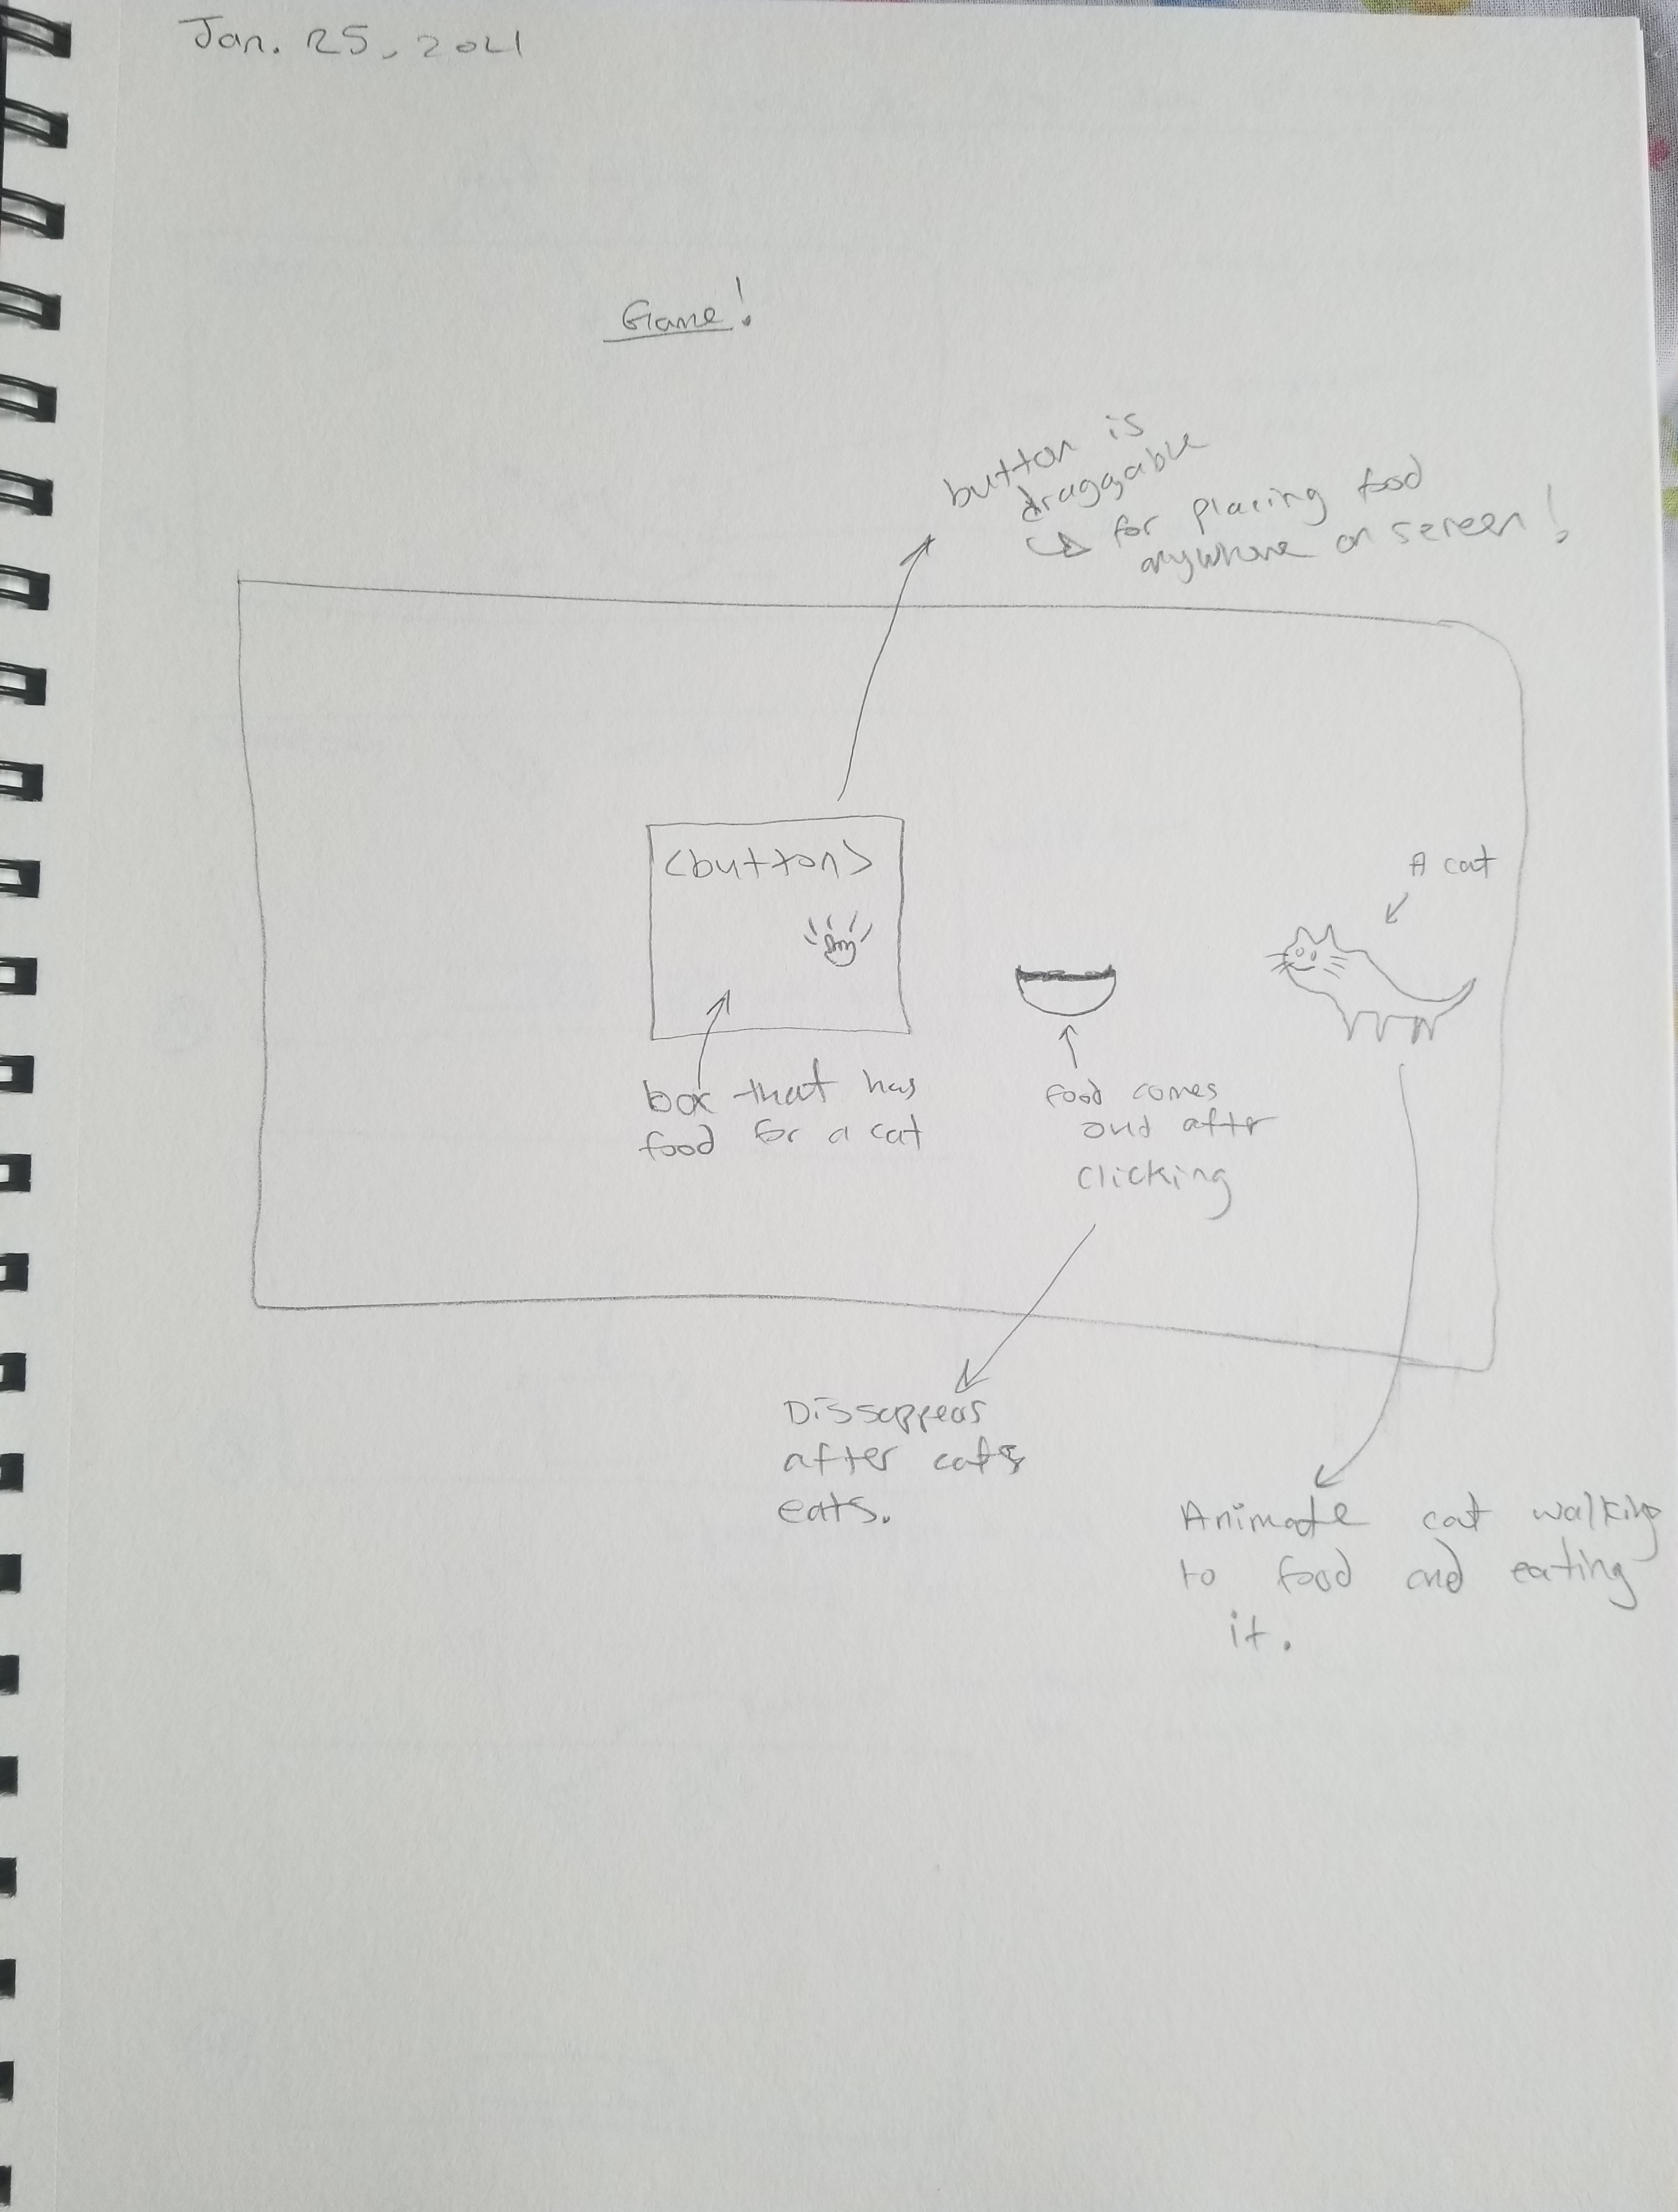 Jan. 25, 2021
Game!
button is
draggable
for placing food
anywhere on screen!
<button>
A cat
box that has
food for a cat
food comes
out after
clicking
Dissappears
after cats
eats.
Animate cat walking
to food and eating
it.